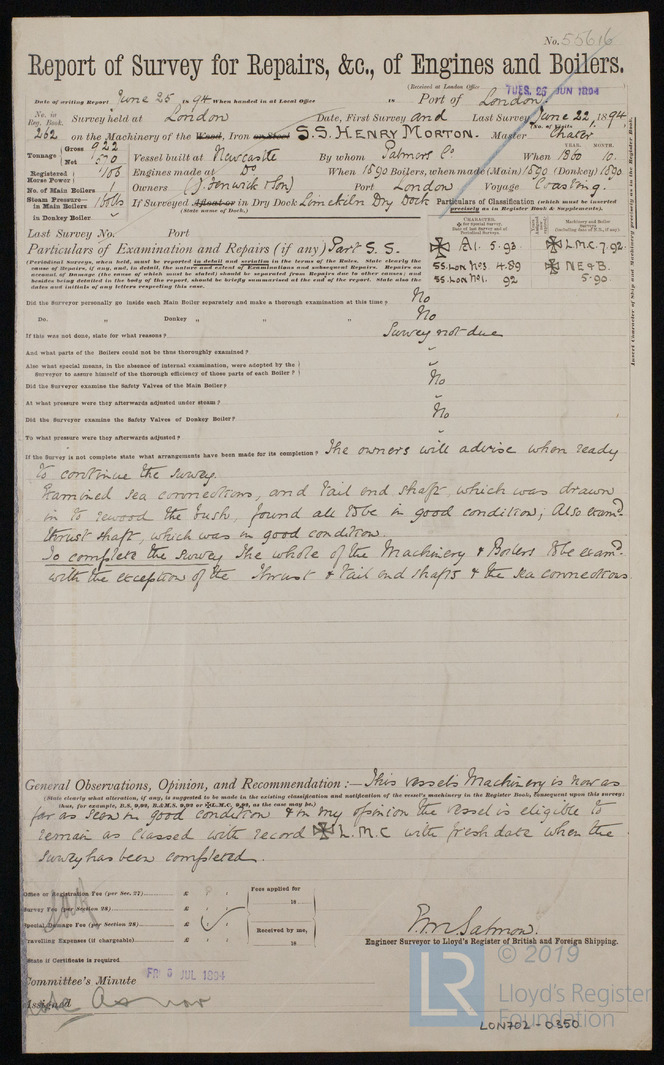 No. 55616
Report of Survey for Repairs, &c., of Engines and Boilers.
(Received at London Office TUES. 26 JUN 1894
Date of writing Report June 25 1894 When handed in at Local Office 18 Port of London.
No. in Reg. Book. 262 Survey held at London Date, First Survey and Last Survey June 22, 1894
(No. of Visits
on the Machinery of the Wood, Iron or Steel S.S. HENRY MORTON. Master Chater
Tonnage Gross 922 Net 570 Vessel built at Newcastle By whom Palmers Co When YEAR. 1860 MONTH. 10.
Registered Horse Power 106 Engines made at Do When 1890 Boilers, when made (Main) 1890 (Donkey) 1890
No. of Main Boilers 1 Owners (J. Fenwick & Son) Port London Voyage Coasting.
Steam Pressure in Main Boilers 160 lbs If Surveyed Afloat or in Dry Dock Limekiln Dry Dock
(State name of Dock.)
in Donkey Boiler
Particulars of Classification (which must be inserted precisely as in Register Book & Supplements).
CHARACTER. for Special Survey. Date of last Survey and of Periodical Surveys.
Machinery and Boiler Surveys (including date of N.B., if any)
A1. 5.93. L.M.C. 7.92.
SS.LON No3 4.89 NE&B.
SS.LON No1. 92 5.90
Insert Character of Ship and Machinery precisely as in the Register Book.
Last Survey No. Port
Particulars of Examination and Repairs (if any) Part S.S.
(Periodical Surveys, when held, must be reported in detail and seriatim in the terms of the Rules. State clearly the
cause of Repairs, if any, and, in detail, the nature and extent of Examinations and subsequent Repairs. Repairs on
account of Damage (the cause of which must be stated) should be separated from Repairs due to other causes; and
besides being detailed in the body of the report, should be briefly summarised at the end of the report. State also the
dates and initials of any letters respecting this case.
Did the Surveyor personally go inside each Main Boiler separately and make a thorough examination at this time? No
Do. " Donkey " " " No
If this was not done, state for what reasons? Survey not due
And what parts of the Boilers could not be thus thoroughly examined? "
Also what special means, in the absence of internal examination, were adopted by the
Surveyor to assure himself of the thorough efficiency of those parts of each Boiler? "
Did the Surveyor examine the Safety Valves of the Main Boiler? No
At what pressure were they afterwards adjusted under steam? "
Did the Surveyor examine the Safety Valves of Donkey Boiler? No
To what pressure were they afterwards adjusted? "
If the Survey is not complete state what arrangements have been made for its completion? The owners will advise when ready
to continue the survey.
Examined sea connections, and tail end shaft, which was drawn
in to rewood the bush, found all to be in good condition; Also examd
thrust shaft, which was in good condition.
To complete the survey The whole of the Machinery & Boilers to be examd
with the exception of the Thrust & tail end shafts & the sea connections
General Observations, Opinion, and Recommendation:— This vessel's Machinery is now as
(State clearly what alteration, if any, is suggested to be made in the existing classification and notification of the vessel's machinery in the Register Book, consequent upon this survey:
thus, for example, B.S. 9,92, B.&M.S. 9,92 or L.M.C. 9,92, as the case may be.)
far as seen in good condition & in my opinion the vessel is eligible to
remain as classed with record L.M.C with fresh date when the
survey has been completed.
Office or Registration Fee (per Sec. 27) £ Fees applied for
Survey Fee (per Section 28) £ 18
Special Damage Fee (per Section 28) £ Received by me,
Travelling Expenses (if chargeable) £ 18
State if Certificate is required
P.M. Salmon.
Engineer Surveyor to Lloyd's Register of British and Foreign Shipping.
Committee's Minute FRI. 6 JUL 1894
Assigned As now
LR © 2019
Lloyd's Register
Foundation
LON702-0350